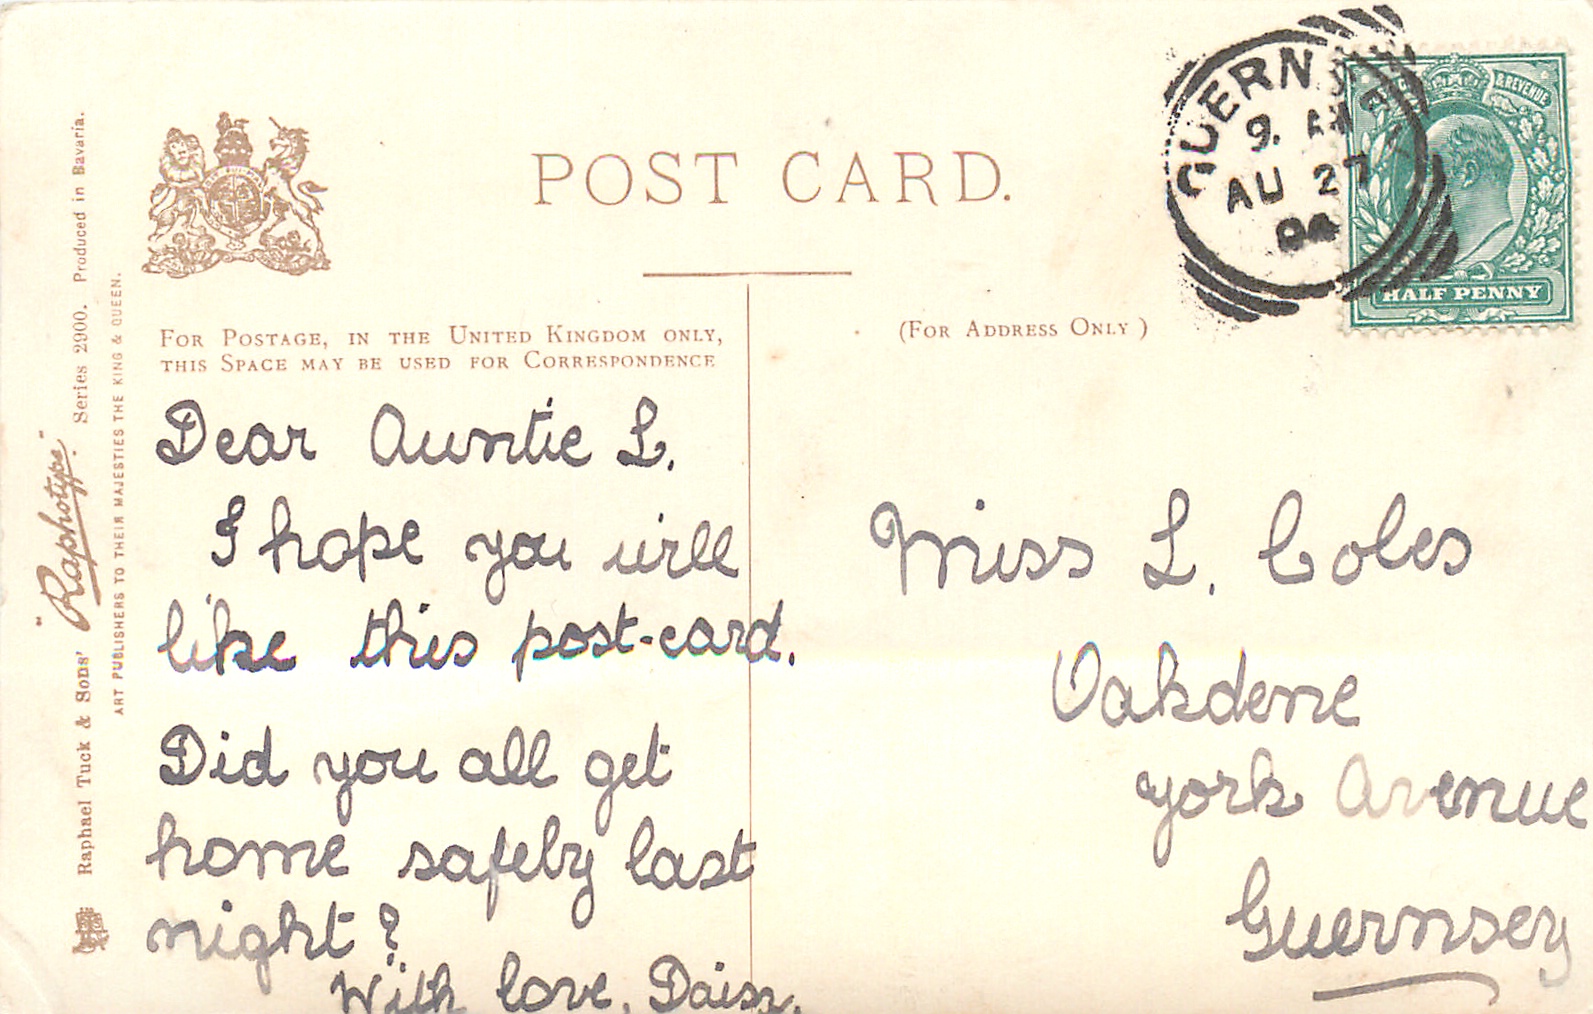 POST CARD.
GUERNSEY
9. AM
AU 27
04
& REVENUE
HALF PENNY
FOR POSTAGE, IN THE UNITED KINGDOM ONLY,
THIS SPACE MAY BE USED FOR CORRESPONDENCE
(FOR ADDRESS ONLY)
Dear Auntie L.
I hope you will
like this post-card.
Did you all get
home safely last
night?
With love, Daisy.
Miss L. Coles
Oakdene
York Avenue
Guernsey
Raphael Tuck & Sons' "Raphotype" Series 2900. Produced in Bavaria.
ART PUBLISHERS TO THEIR MAJESTIES THE KING & QUEEN.